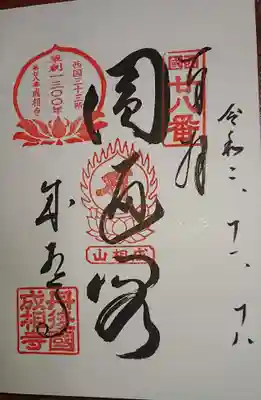 奉拝
令和二、十一、十八
西国
廿八番
圓通閣
西国三十三所
草創一三〇〇年
第廿八番成相寺
成相山
成相寺
丹後國
成相寺